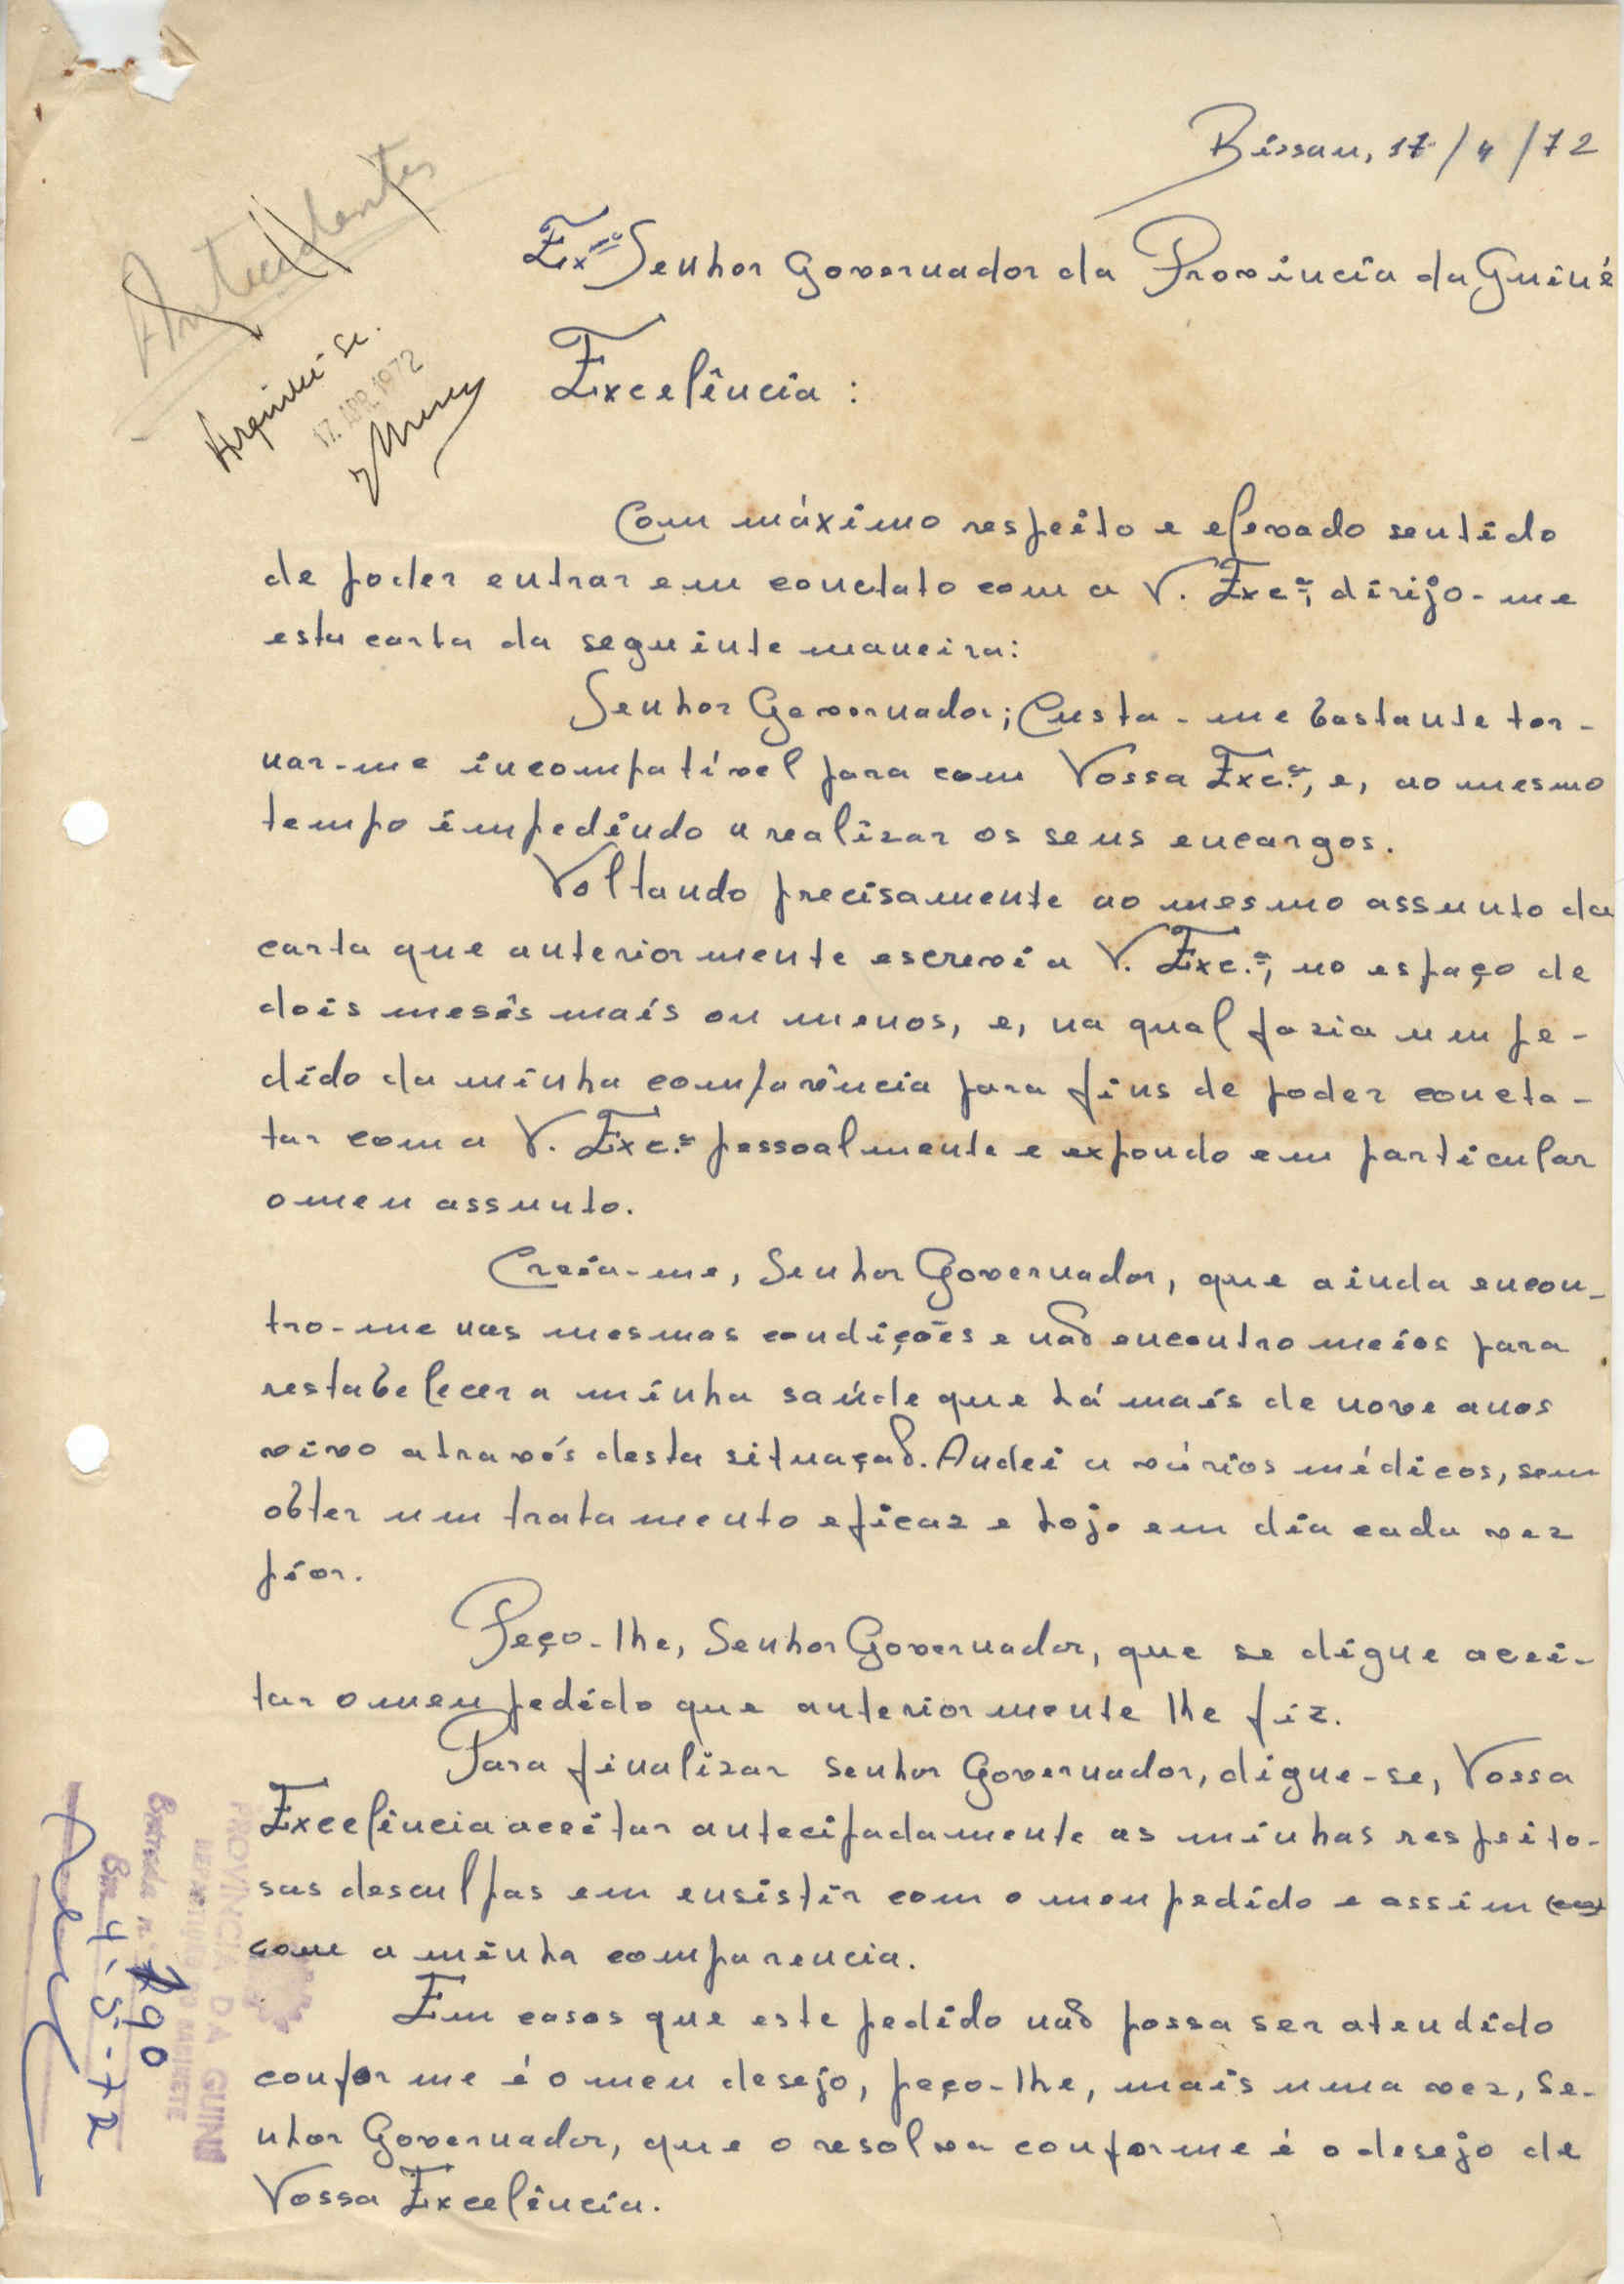 Bissau, 17/4/72
Antecedentes
Exmo Senhor Governador da Provincîa da Guiné
Arquive-se.
17. ABR. 1972
Excelência :
Com máximo respeito e elevado sentido
de poder entrar em conctato com a V. Exc.ª, dirijo-me
esta carta da seguinte maneira:
Senhor Governador; Custa-me bastante tor-
nar-me incompatível para com Vossa Exc.ª, e, ao mesmo
tempo impedindo a realizar os seus encargos.
Voltando precisamente ao mesmo assunto da
carta que anteriormente escrevi a V. Exc.ª, no espaço de
dois mesês mais ou menos, e, na qual fazia um pe-
dido da minha comparência para fins de poder concta-
tar com a V. Exc.ª pessoalmente e expondo em particular
o meu assunto.
Creia-me, Senhor Governador, que ainda encon-
tro-me nas mesmas condições e não encontro meios para
restabelecer a minha saúde que há mais de nove anos
vivo através desta situação. Andei a vários médicos, sem
obter um tratamento eficaz e hoje em dia cada vez
pior.
Peço-lhe, Senhor Governador, que se digne acei-
tar o meu pedido que anteriormente lhe fiz.
Para finalizar Senhor Governador, digne-se, Vossa
Excelência aceitar antecipadamente as minhas respeito-
sas desculpas em ensistir com o meu pedido e assim
com a minha comparencia.
Em casos que este pedido não possa ser atendido
conforme é o meu desejo, peço-lhe, mais uma vez, Se-
nhor Governador, que o resolva conforme é o desejo de
Vossa Excelência.
PROVÍNCIA DA GUINÉ
REPARTIÇÃO DO GABINETE
Entrada n.º 790
Em 4-5-72